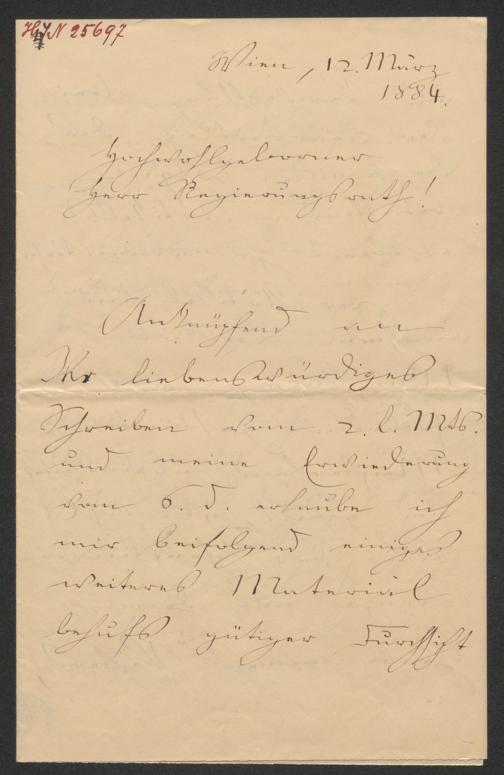 H.J.N 25697
Wien, 12. März
1884.
Hochwohlgeborner
Herr Regierungsrath!
Anknüpfend an
Ihr liebenswürdiges
Schreiben vom 2. l. Mts.
und meine Erwiederung
vom 6. d. erlaube ich
mir beifolgend einiges
weiteres Material
behufs gütiger Durchsicht